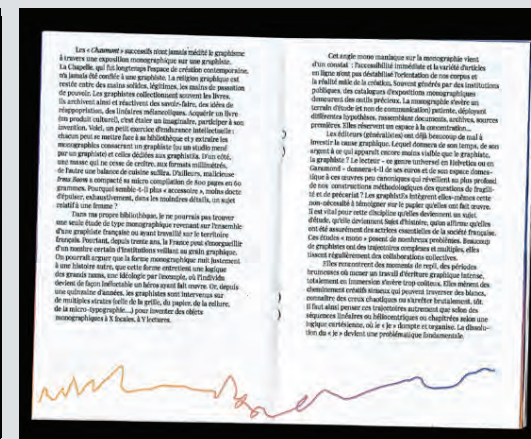 Les « Chaumont » successifs n'ont jamais médité le graphisme
à travers une exposition monographique sur une graphiste.
La Chapelle, qui fut longtemps l'espace de création contemporaine,
n'a jamais été confiée à une graphiste. La religion graphique est
restée entre des mains solides, légitimes, les mains de passation
de pouvoir. Les graphistes collectionnent souvent les livres.
Ils archivent ainsi et réactivent des savoir-faire, des idées de
réappropriation, des linéaires mélancoliques. Acquérir un livre
(en produit culturel), c'est étaler un imaginaire, participer à son
invention. Voici, un petit exercice d'endurance intellectuelle :
chacun peut se mettre face à sa bibliothèque et y extraire les
monographies consacrant un graphiste (ou un studio mené
par un graphiste) et celles dédiées aux graphistEs. D'un côté,
une masse qui ne cesse de croître, aux formats millimétrés,
de l'autre une balance de cuisine suffira. D'ailleurs, malicieuse
Irma Boom a compacté sa micro compilation de 800 pages en 60
grammes. Pourquoi semble-t-il plus « accessoire », moins docte
d'épuiser, exhaustivement, dans les moindres détails, un sujet
relatif à une femme ?
Dans ma propre bibliothèque, je ne pourrais pas trouver
une seule étude de type monographique revenant sur l'ensemble
d'une graphiste française ou ayant travaillé sur le territoire
français. Pourtant, depuis trente ans, la France peut s'enorgueillir
d'un nombre certain d'institutions veillant au grain graphique.
On pourrait arguer que la forme monographique nuit justement
à une histoire autre, que cette forme entretient une logique
des grands noms, une idéologie par l'exemple, où l'individu
devient de façon ineffaçable un héros ayant fait œuvre. Or, depuis
une quinzaine d'années, les graphistes sont intervenus sur
de multiples strates (celle de la grille, du papier, de la reliure,
de la micro-typographie…) pour inventer des objets
monographiques à X focales, à Y lectures.
Cet angle mono maniaque sur la monographie vient
d'un constat : l'accessibilité immédiate et la variété d'articles
en ligne n'ont pas déstabilisé l'orientation de nos corpus et
la réalité mâle de la création. Souvent générés par des institutions
publiques, des catalogues d'expositions monographiques
demeurent des outils précieux. La monographie s'avère un
terrain d'étude (et non de consommation) patiente, déployant
différentes hypothèses, rassemblant documents, archives, sources
premières. Elles réservent un espace à la concentration…
Les éditeurs (généralistes) ont déjà beaucoup de mal à
investir la cause graphique. Lequel donnera de son temps, de son
argent à ce qui apparaît encore moins visible que le graphiste,
la graphiste ? Le lecteur – ce genre universel en Helvetica ou en
Garamond – donnera-t-il de ses euros et de son espace domes-
tique à ces œuvres peu canoniques qui réveillent au plus profond
de nos constructions méthodologiques des questions de fragili-
té et de précarité ? Les graphistEs intègrent elles-mêmes cette
non-nécessité à témoigner sur le papier qu'elles ont fait œuvre.
Il est vital pour cette discipline qu'elles deviennent un sujet
d'étude, qu'elles deviennent sujet d'histoire, qu'on affirme qu'elles
ont été assurément des actrices essentielles de la société française.
Ces études « mono » posent de nombreux problèmes. Beaucoup
de graphistes ont des trajectoires complexes et multiples, elles
tissent régulièrement des collaborations collectives.
Elles rencontrent des moments de repli, des périodes
brumeuses où mener un travail d'écriture graphique intense,
totalement en immersion s'avère trop coûteux. Elles mènent des
cheminement créatifs sinueux qui peuvent traverser des blancs,
connaître des creux chaotiques ou s'arrêter brutalement,
Il faut ainsi penser ces trajectoires autrement que selon des
séquences linéaires ou héliocentriques ou chapitrées selon une
logique cartésienne, où le « je » dompte et organise. La dissolu-
tion du « je » devient une problématique fondamentale.